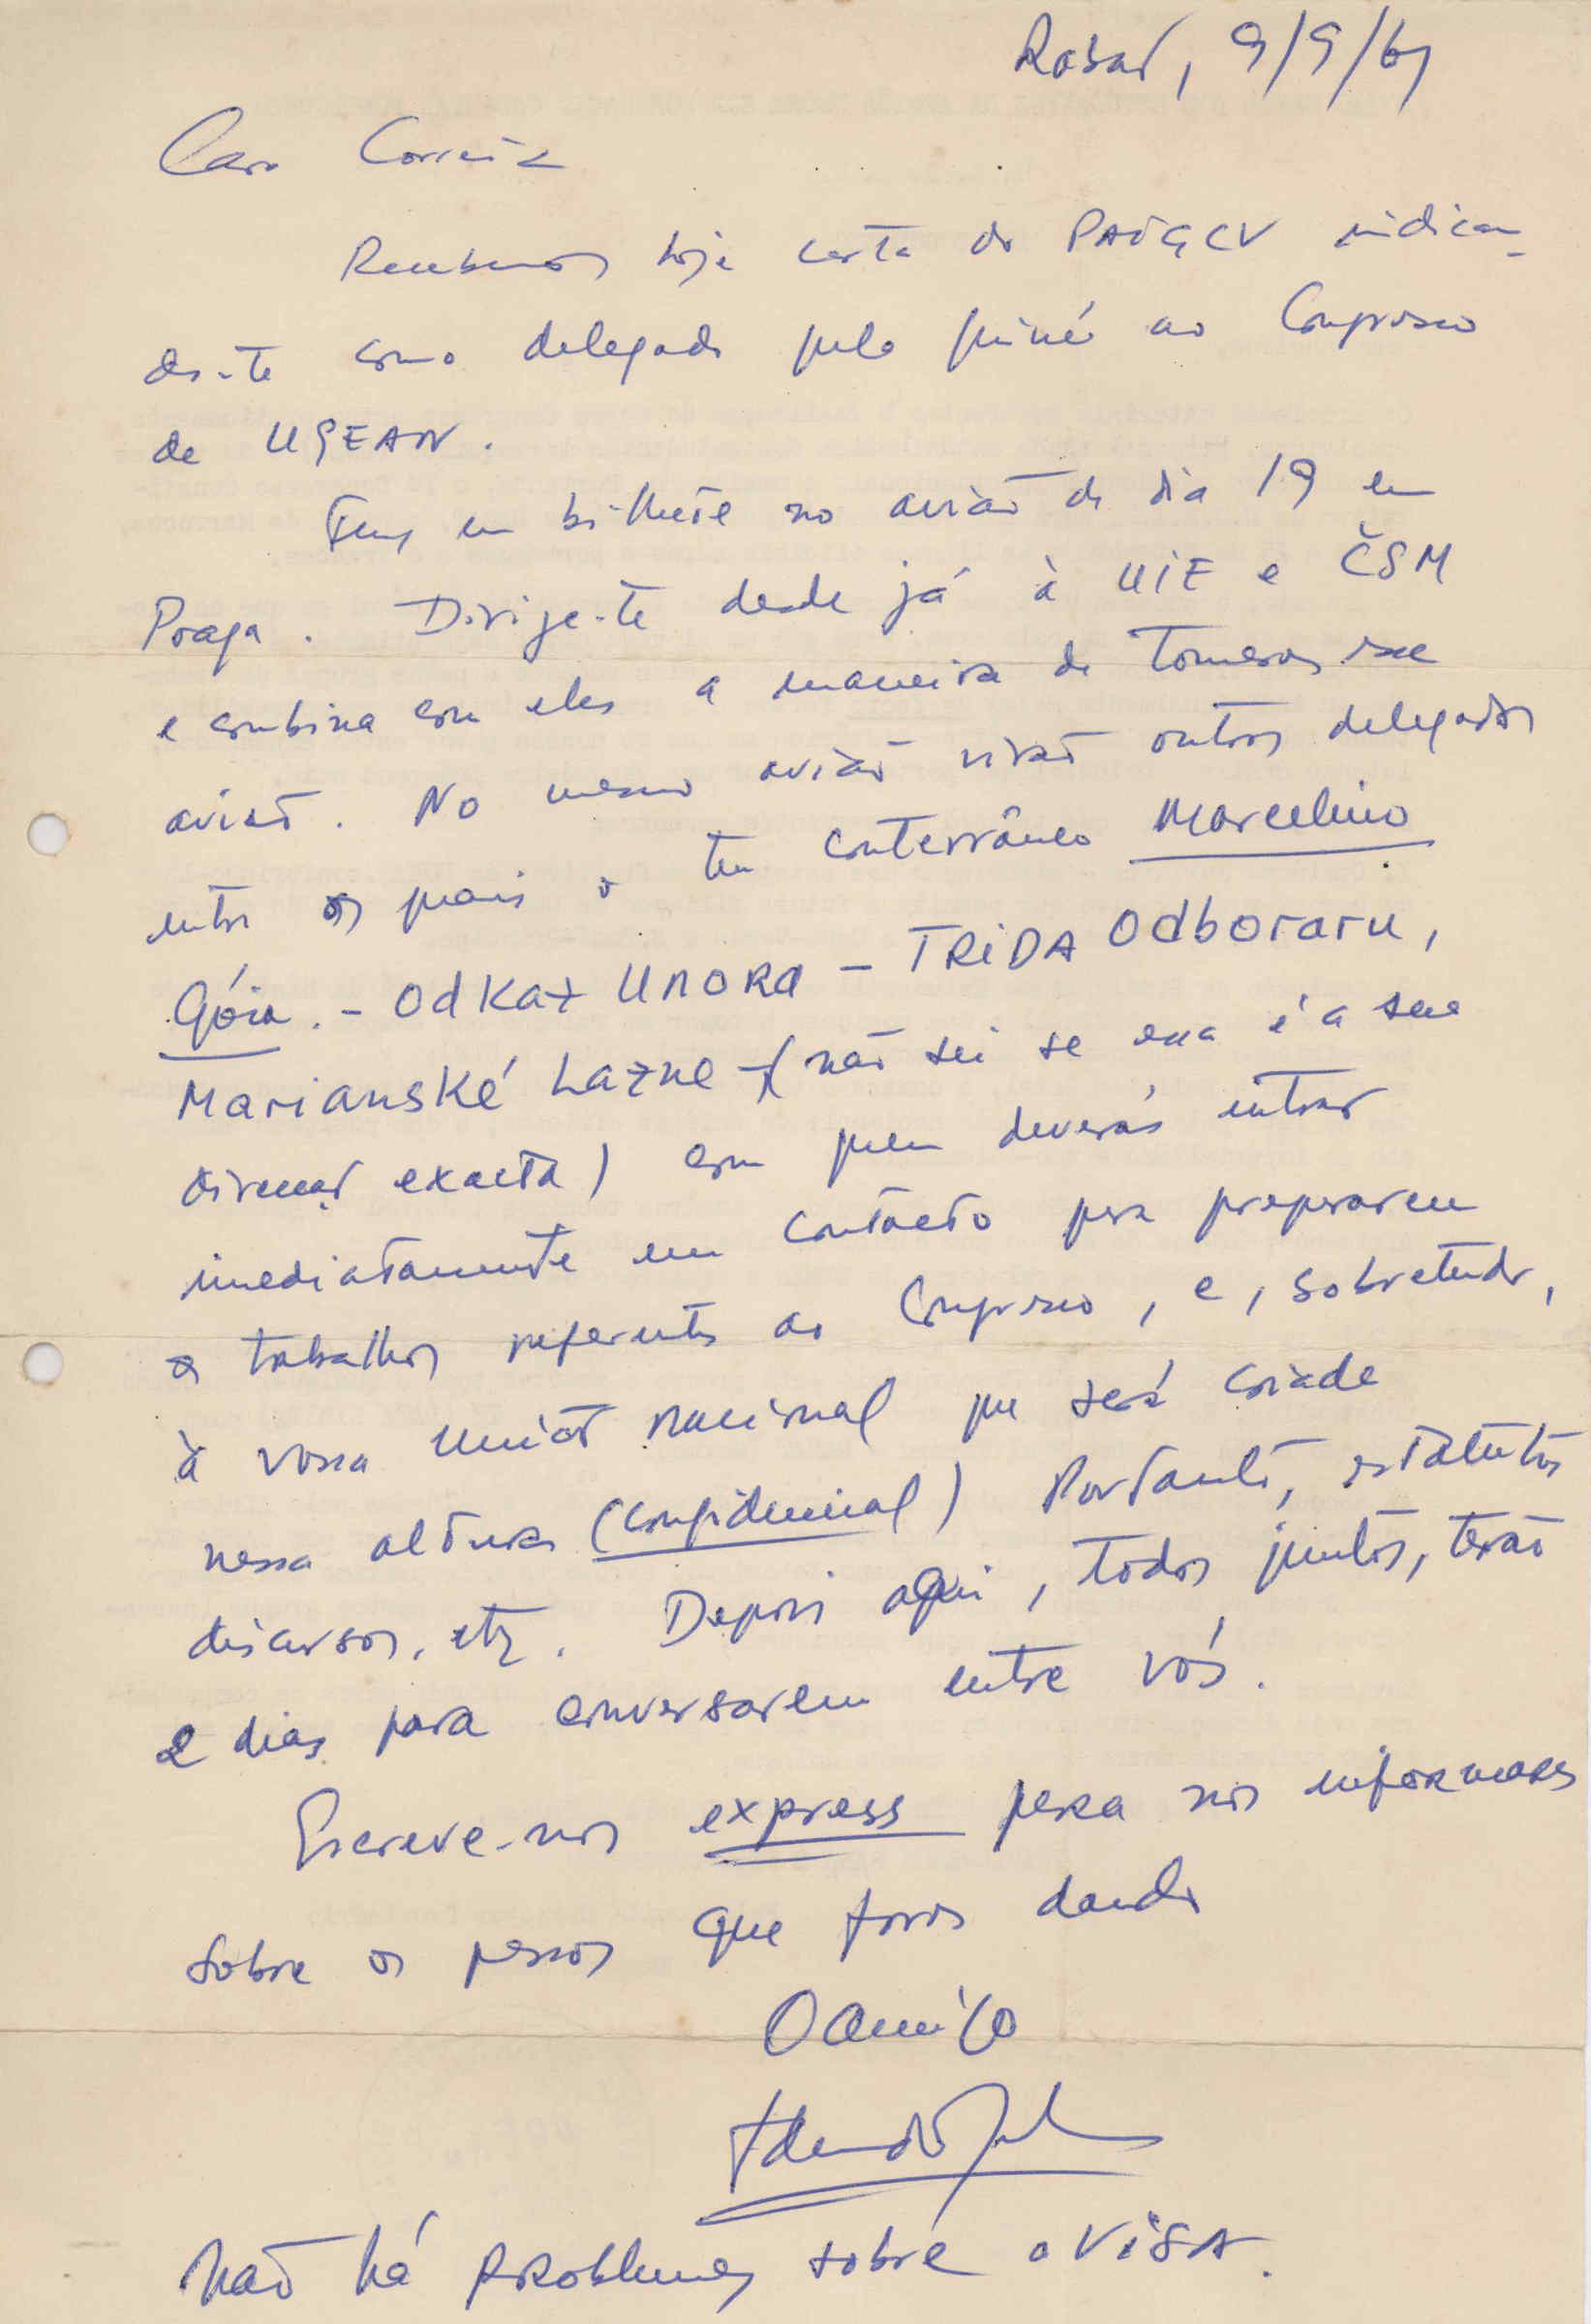 Rabat, 9/9/61
Caro Correia
Recebemos hoje carta do PAIGCV indican-
do-te como delegado pela Guiné ao Congresso
de UGEAN.
Tens um bilhete no avião do dia 19 em
Praga. Dirige-te desde já à UIE e ČSM
e combina com eles a maneira de tomares esse
avião. No mesmo avião virão outros delegados
entre os quais o teu conterrâneo Marcelino
Góia. - Odkaz UNORA - TRIDA Odboraru,
Marianské Lazne - (não sei se essa é a sua
direcção exacta) com quem deverás entrar
imediatamente em contacto para prepararem
os trabalhos referentes ao Congresso, e, sobretudo,
à vossa União Nacional que será criada
nessa altura (confidencial) Portanto, estatutos
discursos, etc. Depois aqui, todos juntos, terão
2 dias para conversarem entre vós.
Escreve-nos express para nos informares
sobre os passos que fores dando
O amigo
Não há problemas sobre o VISA.